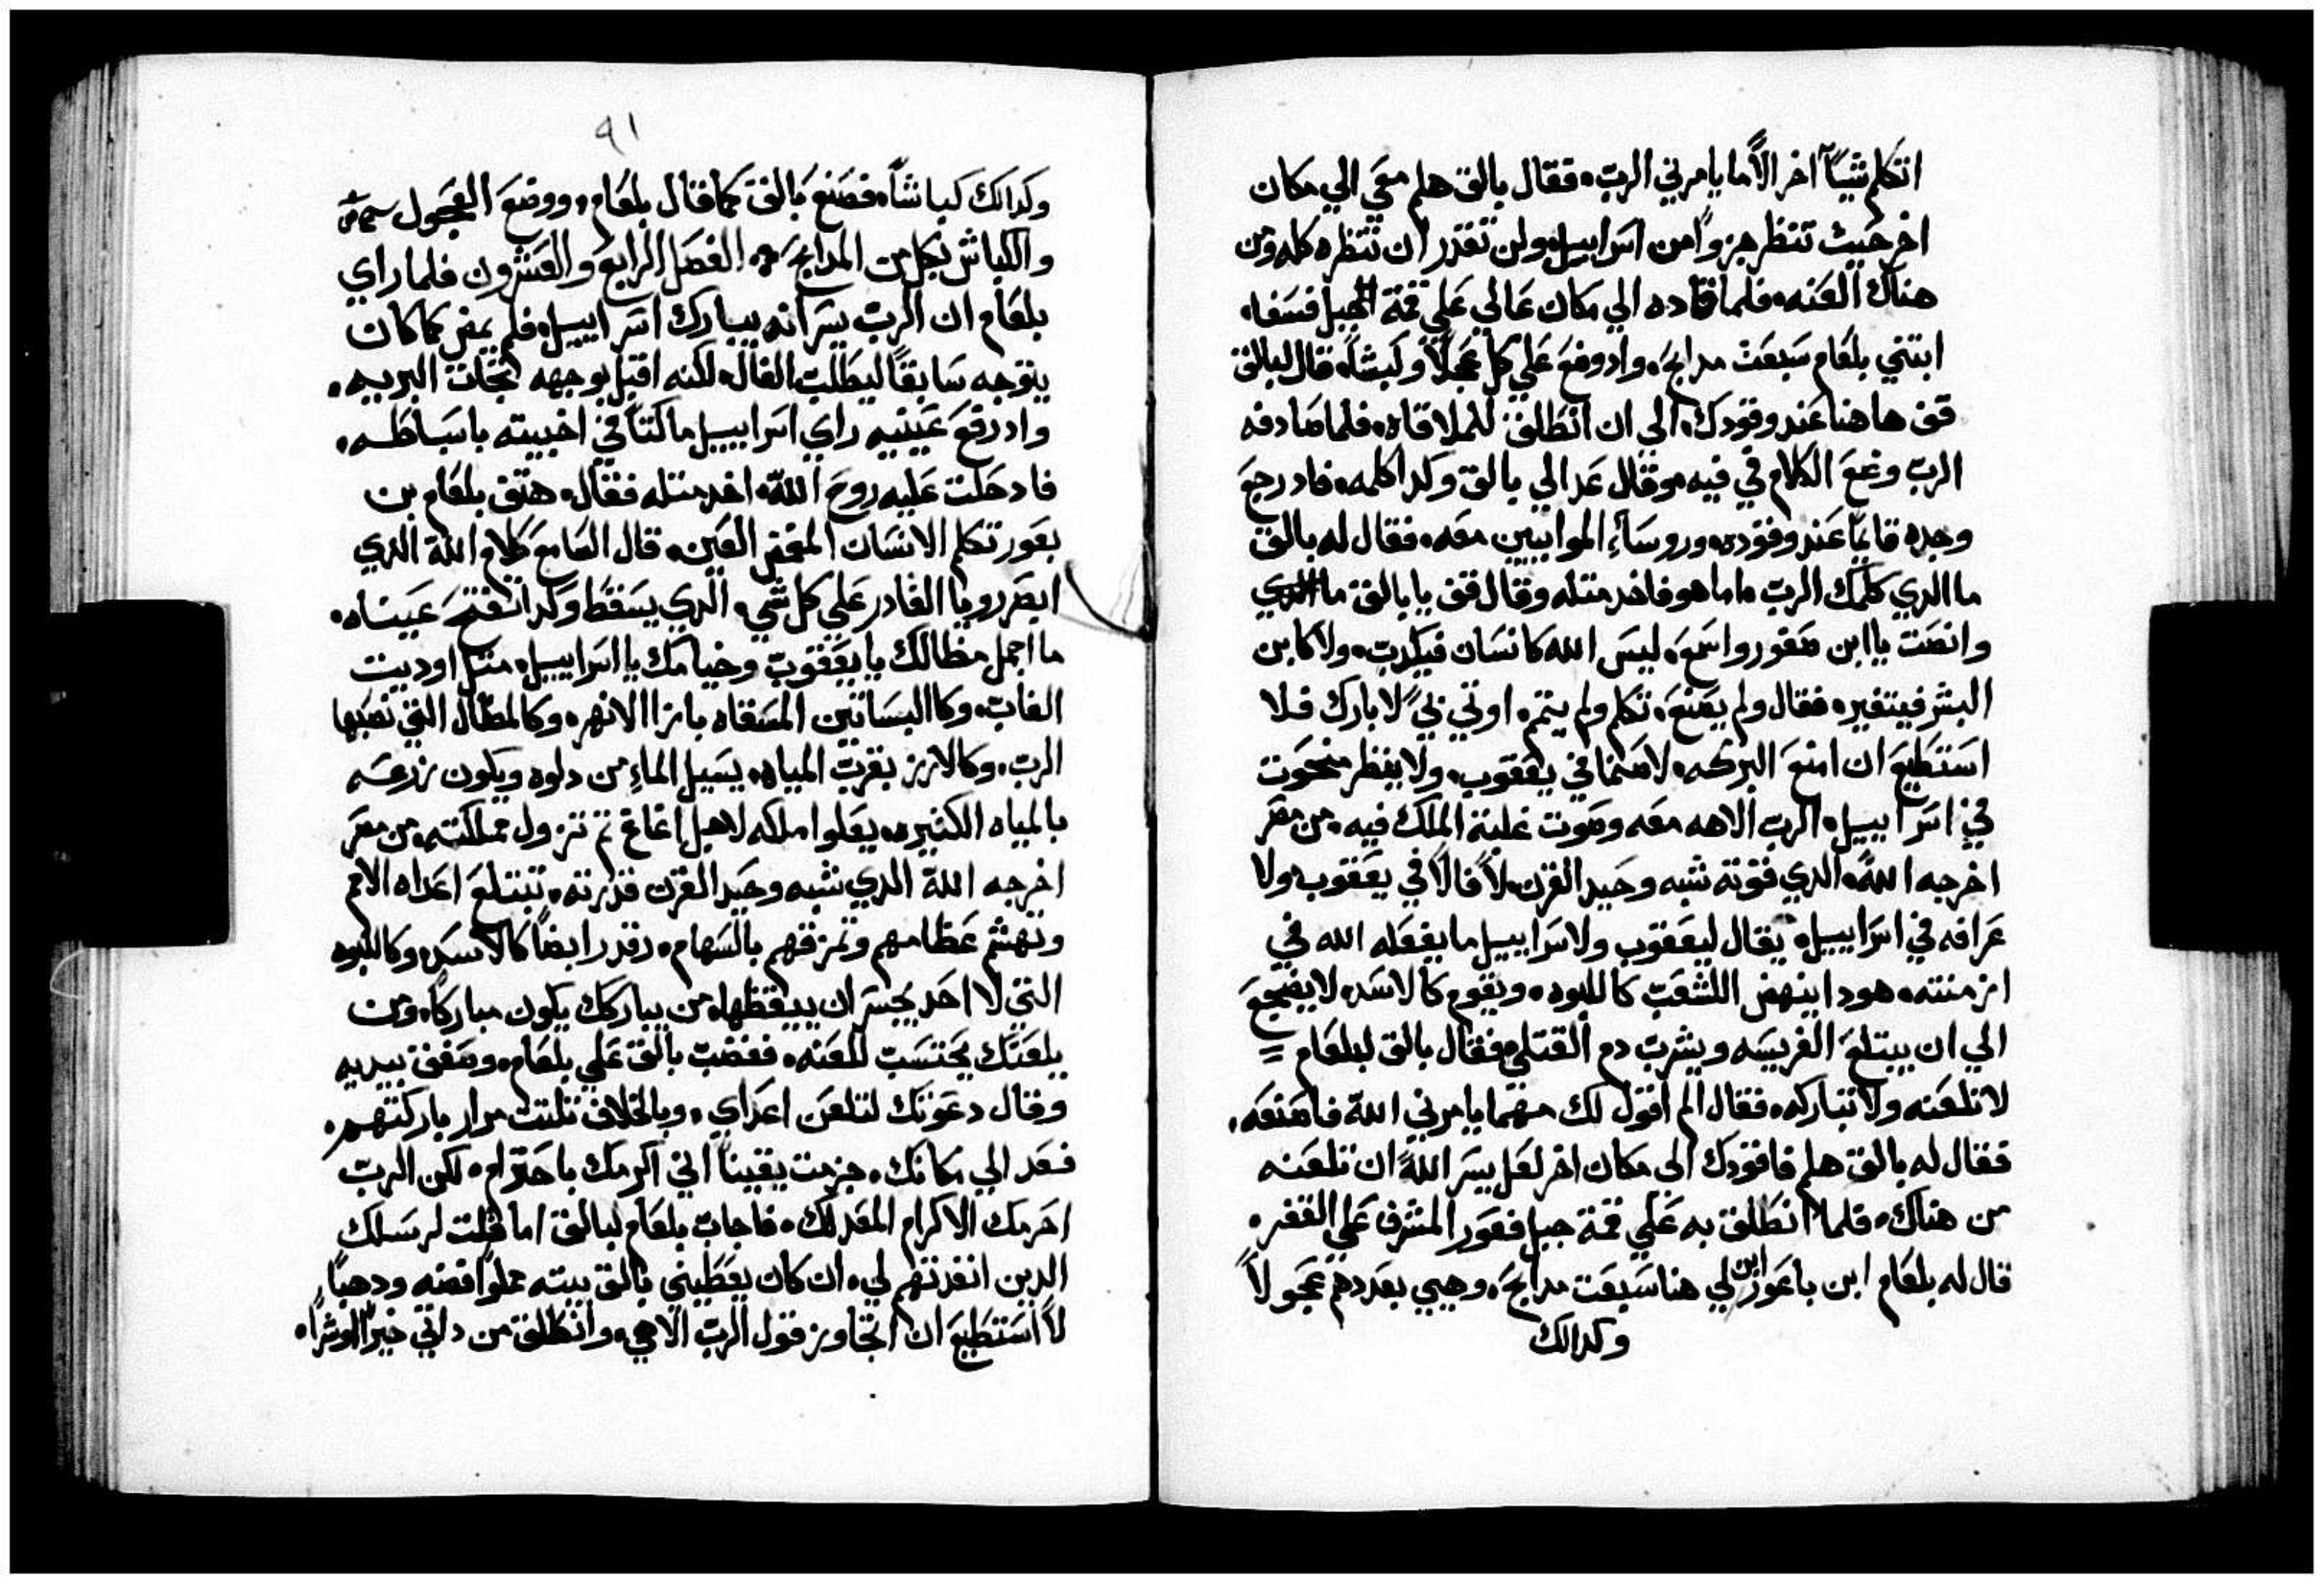 اتكلم شيئاً اخر الاّ ما يامرني الربّ. فقال بالاق هلم معي الي مكان
اخر حيث تنظر جزواً من اسراييل ولن تقدر ان تنظره كله ومن
هناك العنه. فلما قاده الي مكان عالي علي قمّة الجبل فسغا.
ابتني بلعام سبعت مدابح. واد وضع علي كل عجلاً وكبشاً. قال لبالاق
قف هاهنا عند وقودك. الي ان انطلق للملاقاه. فلما صادفه
الربّ وضع الكلام في فيه وقال عد الي بالاق وكدا كلمه. فاد رجع
وجده قايماً عند وقوده. وروساء الموابيين معه. فقال له بالاق
ما الدي كلمك الربّ اما هو فاخد مثله وقال قف يا بالاق
وانصت يا ابن صفور واسمع. ليس الله كانسان فيكدب. ولا كابن
البشر فيتغير. فقال ولم يصنع. تكلم ولم يتم. اوتي بي لابارك فلا
استطيع ان امنع البركه. لا صنما في يعقوب. ولا ينظر منحوت
في اسراييل. الربّ الاهه معه وصوت غلبة الملك فيه. من مصر
اخرجه اللهّ. الدي قوته شبه وحيد القرن. لا فالاً في يعقوب. ولا
عرافه في اسراييل. يقال ليعقوب ولاسراييل ما يفعله الله في
ازمنته. هودا ينهض الشعب كاللبوه. ويقوم كالاسد. لا يضجع
الي ان يبتلع الفريسه ويشرب دم القتلي. فقال بالاق لبلعام
لا تلعنه ولا تباركه. فقال الم اقول لك مهما يامرني اللهّ فاصنعه.
فقال له بالاق هلم فاقودك الى مكان اخر لعل يسر اللهّ ان تلعنه
من هناك. فلما انطلق به علي قمة جبل فعور المشرف علي القفر.
قال له بلعام ابن باعور ابن لي هنا سبعت مدابح. وهيي بعددهم عجولاً
وكدالك
٩١
وكدالك كباشاً. فصنع بالاق كما قال بلعام. ووضع العجول
والكباش بكل من المدابح. الفصل الرابع والعشرون فلما راي
بلعام ان الربّ يسر انه يبارك اسراييل. فلم يمض كما كان
يتوجه سابقاً ليطلب الفال. لكنه اقبل بوجهه تجات البريه.
واد رفع عينيه راي اسراييل ماكثاً في اخبيته باسباطه.
فاد حلت عليه روح اللهّ. اخد مثله فقال. هتف بلعام بن
بعور تكلم الانسان المغمض العين. قال السامع كلام اللهّ الدي
ابصر رويا القادر علي كل شي. الدي يسقط وكدا تنفتح عيناه.
ما اجمل مظالك يا يعقوب وخيامك يا اسراييل. مثل اوديت
الغاب. وكالبساتين المسقاه بازا الانهر. وكالمظال التي نصبها
الربّ. وكالارز بقرب المياه. يسيل الماء من دلوه ويكون زرعه
بالمياه الكثيره. يعلوا ملكه لاجل اغاغ ثم تزول مملكته. من مصر
اخرجه اللهّ الدي شبه وحيد القرن قدرته. تبتلع اعداه الامم
وتهشم عظامهم وتمزقهم بالسهام. رقد رابضاً كالاسد. وكاللبوه
التي لا احد يجسر ان يبقظها. من يباركك يكون مباركاً. ومن
يلعنك يحتسب للعنه. فغضب بالاق علي بلعام. وصفق بيديه
وقال دعوتك لتلعن اعداي. وبالخلاف تلتت مرار باركتهم.
فعد الي مكانك. جزمت يقيناً اني اكرمك باحترام. لكن الربّ
احرمك الاكرام المعد لك. فاجاب بلعام لبالاق اما قلت لرسلك
الدين انفدتهم لي. ان كان يعطيني بالاق بيته مملواً فضه ودهباً.
لا استطيع ان اتجاوز قول الربّ الاهي. وانطلق من داتي خيراً او شراً.